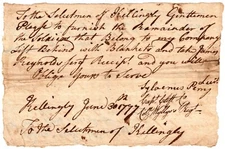 To the Selectmen of Killingly Gentlemen
Please to furnish the Remainder of
the Soldiers that Belong to my Company
Left Behind with Blankets and take James
Reynolds for Receipt and you will
Oblige Yours to Serve
Sylvanus Perry Lieut
Killingly June 30th 1777
To the Selectmen of Killingly